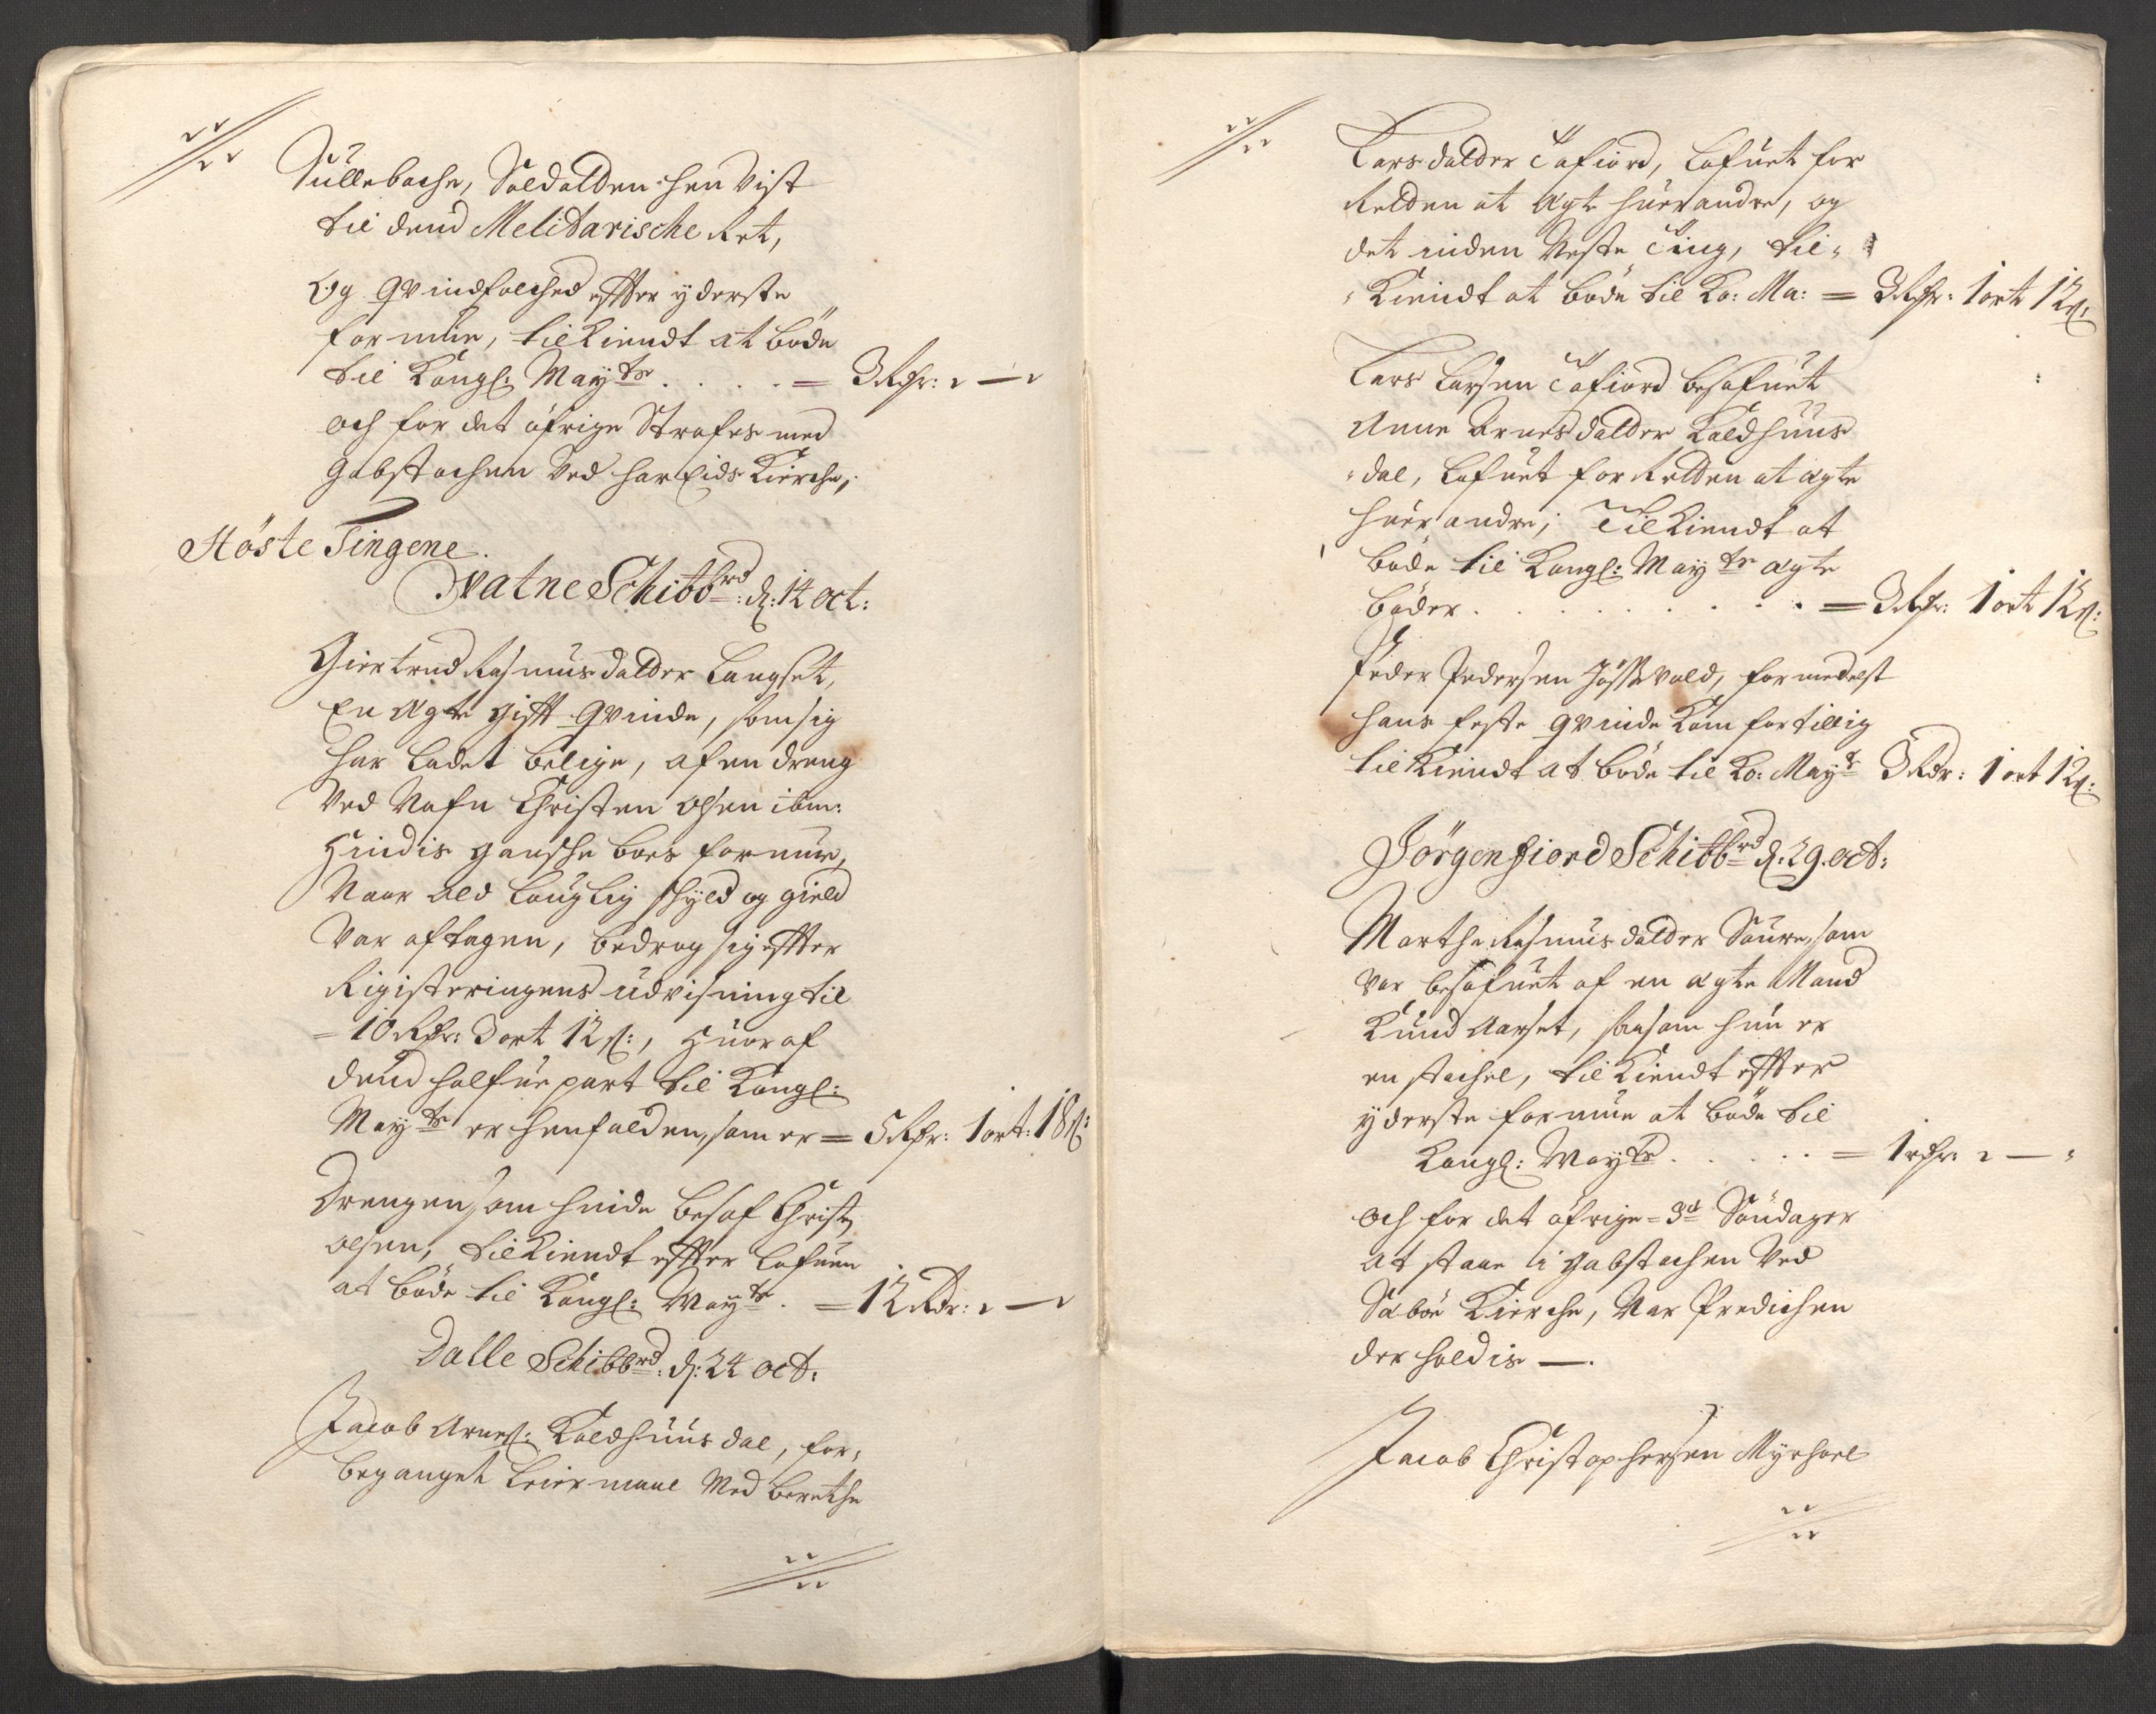 Süllebache, Soldatten hen Vist
til dend Melitarische Ret,
Og Qvindfolched effter yderste
formüe, tilkiendt at böde
til Kongl: Mayts . . . . = 3 Rdr: " — "
och for det öfrige Strafes med
Gabstochen Ved Hareids Kierche,
Höste Tingene.
Vatne Schibbrd: d: 14 oct:
Giertrud Rasmusdatter Langset,
En ægte gifft Qvinde, som sig
har ladet belige, af en dreng
Ved Nafn Christen Olsen ibm:
Hindis gansche boes formue,
Naar ald lauglig schyld og gield
Var aftagen, bedrog sig effter
Rigisteringens udvisning til
= 10 Rdr: 3 ort 12 s:, Hvoraf
dend halfue part til Kongl:
Mayts er henfalden, som er = 5 Rdr: 1 ort: 18 s:
Drengen som hinde besof Christen
Olsen, tilkiendt effter Lofuen
at böde til Kongl: Mayts . = 12 Rdr: " — "
Dalle Schibbrd: d: 24 oct:
Jacob Arnes: Kaldhuusdal, for,
begangen Leiermaal Med Berethe
Larsdatter Tafiord, Lofuet for
Retten at ægte hüerandre, og
det inden Neste Ting, til,
,kiendt at böde til Ko: Ma: = 3 Rdr: 1 ort 12 s:
Lars Larsen Tafiord besofuet
Anne Arnesdatter Kaldhuus
,dal, Lofuet for Retten at ægte
hüerandre; Tilkiendt at
böde til Kongl: Mayts ægte
böder . . . . . . . . = 3 Rdr: 1 ort 12 s:
Peder Pedersen Hössevold, formedelst
hans feste Qvinde kom for tillig
tilkiendt at böde til Ko: Mayts 3 Rdr: 1 ort 12 s:
Jörgenfiord Schibbrd d: 29. oct:
Marthe Rasmusdatter Saure, som
var besofuet af en ægte Mand
Knud Aarset, saasom hun er
en stachel, tilkiendt effter
yderste formue at böde til
Kongl: Mayts . . . . . = 1 rdr: " — "
och for det öfrige = 3de Söndager
at staae i gabstochen Ved
Sæböe Kierche, Naar Predichen
der holdis — .
Jacob Christophersen Myrhoel